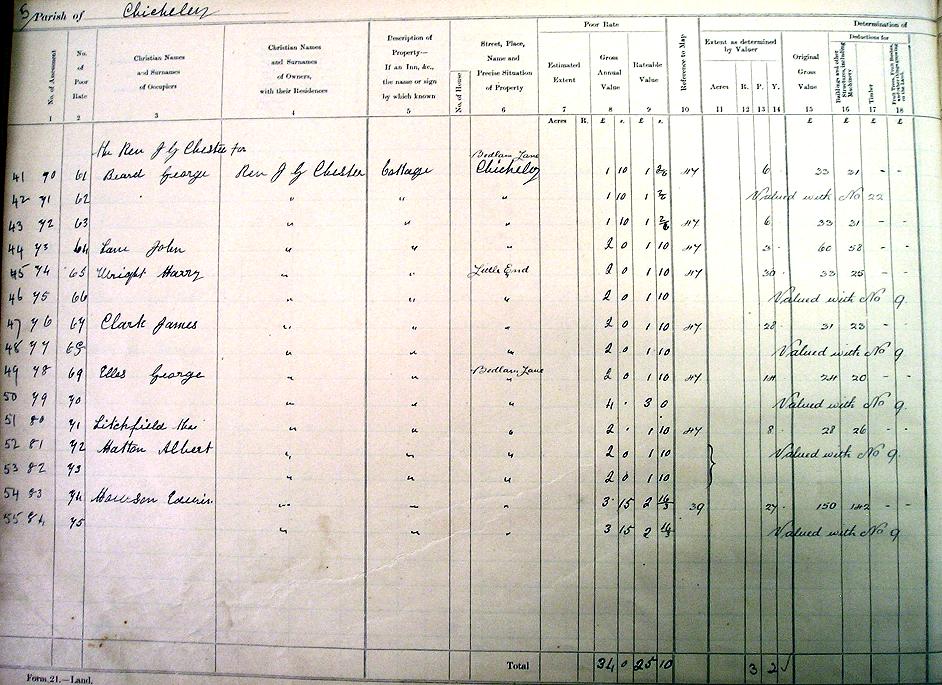 5 Parish of Chicheley
Poor Rate
Determination of
No. of Assessment
No. of Poor Rate
Christian Names and Surnames of Occupiers
Christian Names and Surnames of Owners, with their Residences
Description of Property— If an Inn, &c., the name or sign by which known
No. of House
Street, Place, Name and Precise Situation of Property
Estimated Extent
Gross Annual Value
Rateable Value
Reference to Map
Extent as determined by Valuer
Acres R. P. Y.
Original Gross Value
Deductions for
Buildings and other Structures, including Machinery
Timber
1 2 3 4 5 6 7 8 9 10 11 12 13 14 15 16 17 18
Acres R. £ s. £ s. £ £ £ £
The Rev J G Chester for
Bedlam Lane
41 70 61 Beard George Rev J G Chester Cottage Chicheley 1 10 1 47 6 33 31 - -
42 71 62 " " " 1 10 1 Valued with No 22
43 72 63 " " " 1 10 1 47 6 33 31 - -
44 73 64 Lane John " " " 2 0 1 10 47 60 58 - -
45 74 65 Wright Harry " " Little End 2 0 1 10 47 30 33 25 - -
46 75 66 " " " 2 0 1 10 Valued with No 9.
47 76 67 Clark James " " " 2 0 1 10 47 28 31 23 - -
48 77 68 " " " 2 0 1 10 Valued with No 9
49 78 69 George " " Bedlam Lane 2 0 1 10 47 24 20 - -
50 79 70 " " " 4 . 3 0 Valued with No 9.
51 80 71 Litchfield " " " 2 . 1 10 47 8 28 26 - -
52 81 72 Hatton Albert " " " 2 0 1 10 Valued with No 9.
53 82 73 " " " 2 0 1 10
54 83 74 " " " 3 15 2 39 27 150 142 - -
55 84 75 " " " 3 15 2 Valued with No 9
Total 34 0 25 10 3 2
Form 21.—Land.